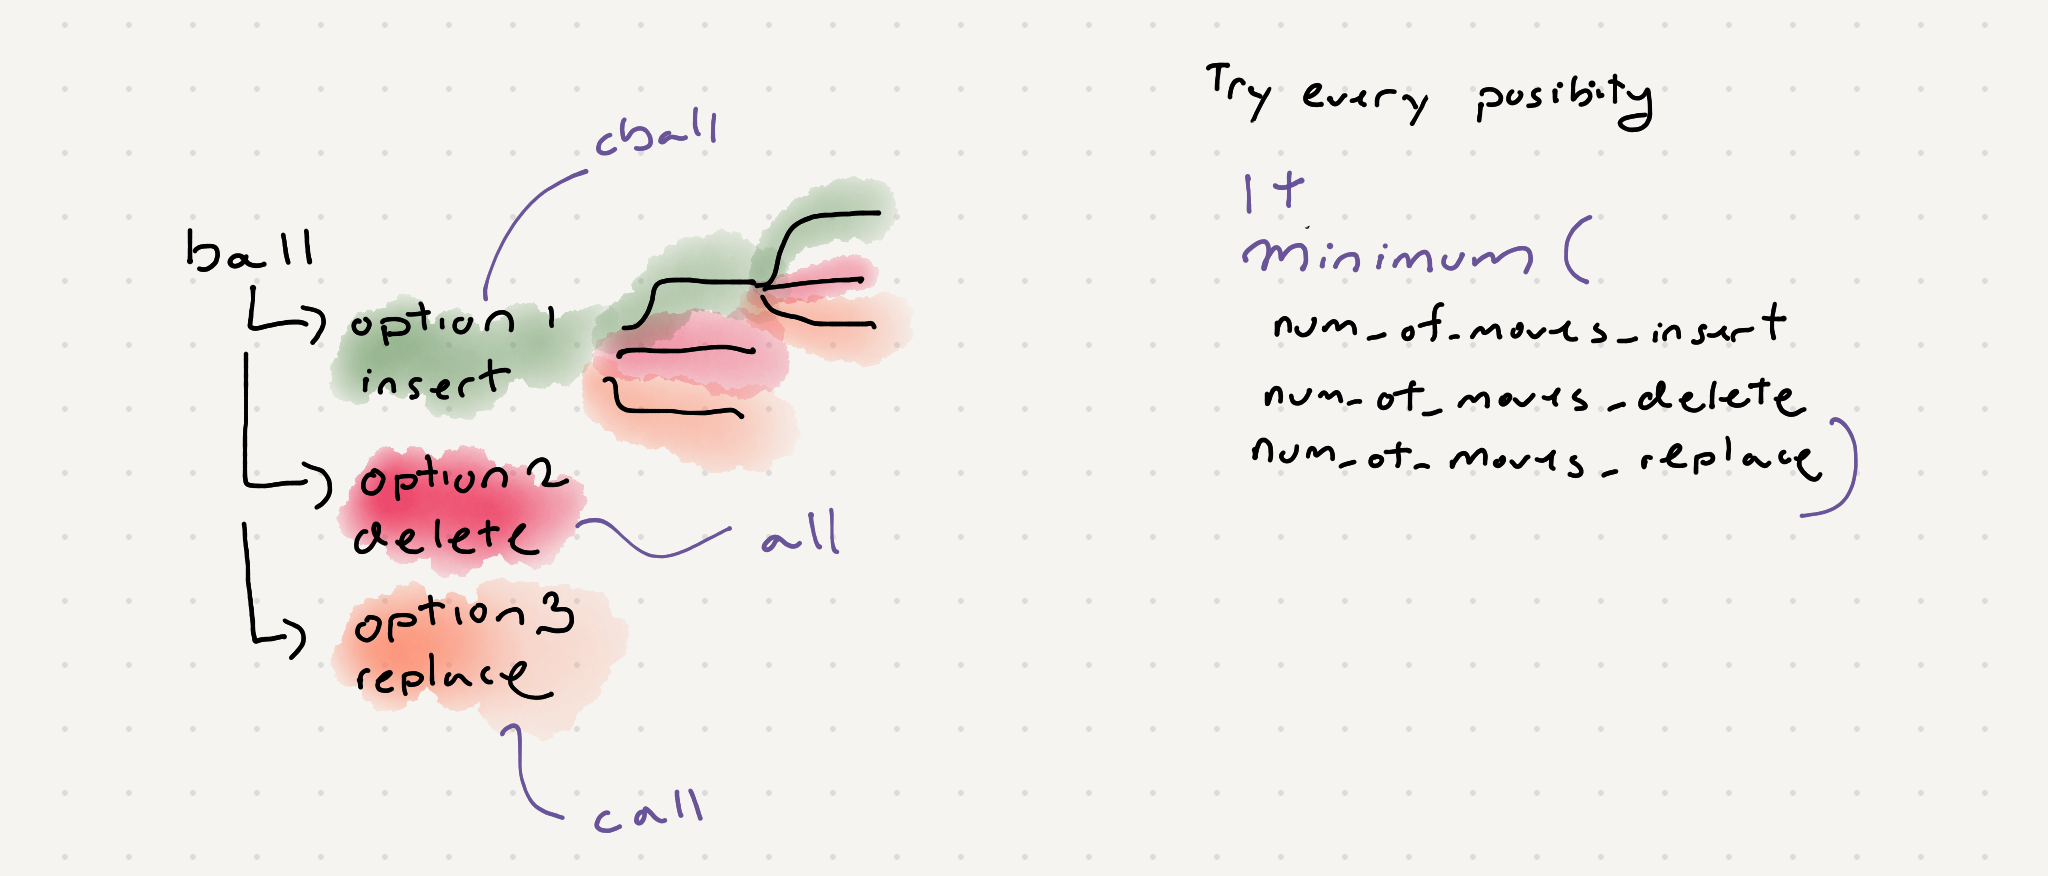 cball
ball
option 1
insert
option 2
delete
all
option 3
replace
call
Try every posibity
1 +
minimum (
num_of_moves_insert
num_of_moves_delete
num_of_moves_replace)